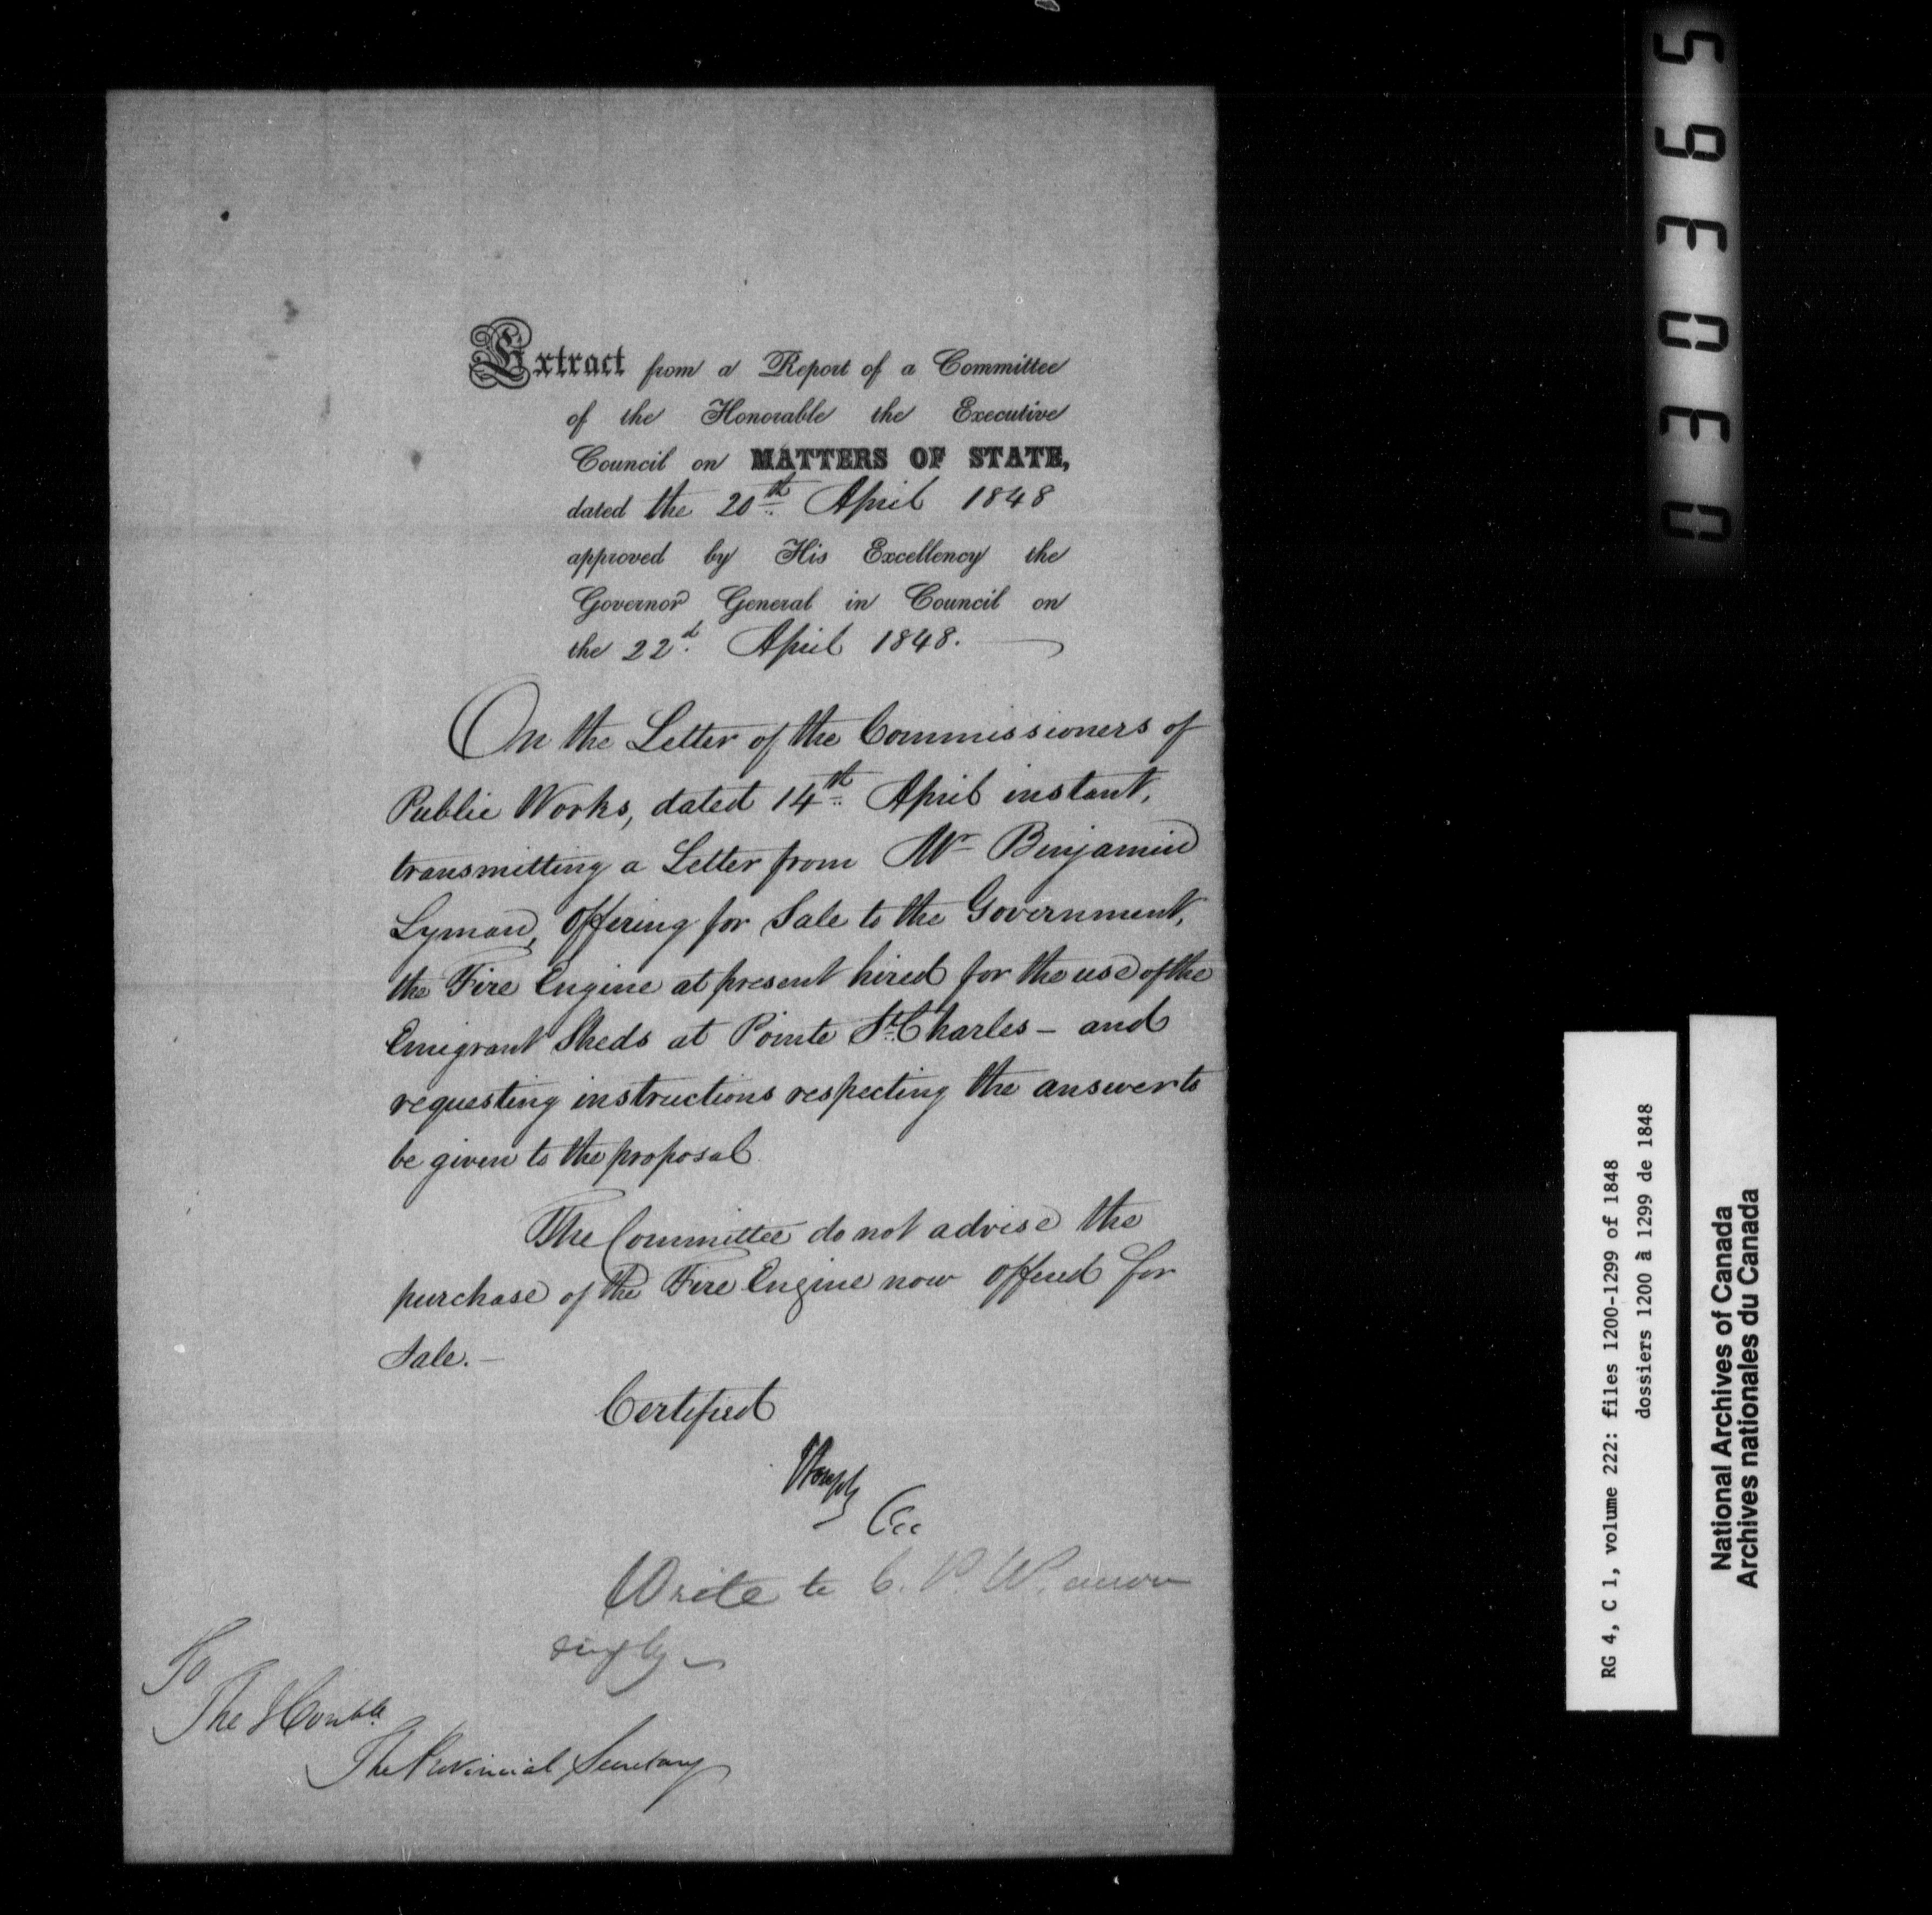 Extract from a Report of a Committee
of the Honorable the Executive
Council on MATTERS OF STATE,
dated the 20th April 1848
approved by His Excellency the
Governor General in Council on
the 22d April 1848.
On the Letter of the Commissioners of
Public Works, dated 14th April instant,
transmitting a Letter from Mr Benjamin
Lyman, offering for Sale to the Government,
the Fire Engine at present hired for the use of the
Emigrant Sheds at Pointe St. Charles – and
requesting instructions respecting the answer to
be given to the proposal
The Committee do not advise the
purchase of the Fire Engine now offered for
Sale. –
Certified
Write to C. P. W
To
The Honble
The Provincial Secretary
030365
RG 4, C 1, volume 222: files 1200-1299 of 1848
dossiers 1200 à 1299 de 1848
National Archives of Canada
Archives nationales du Canada